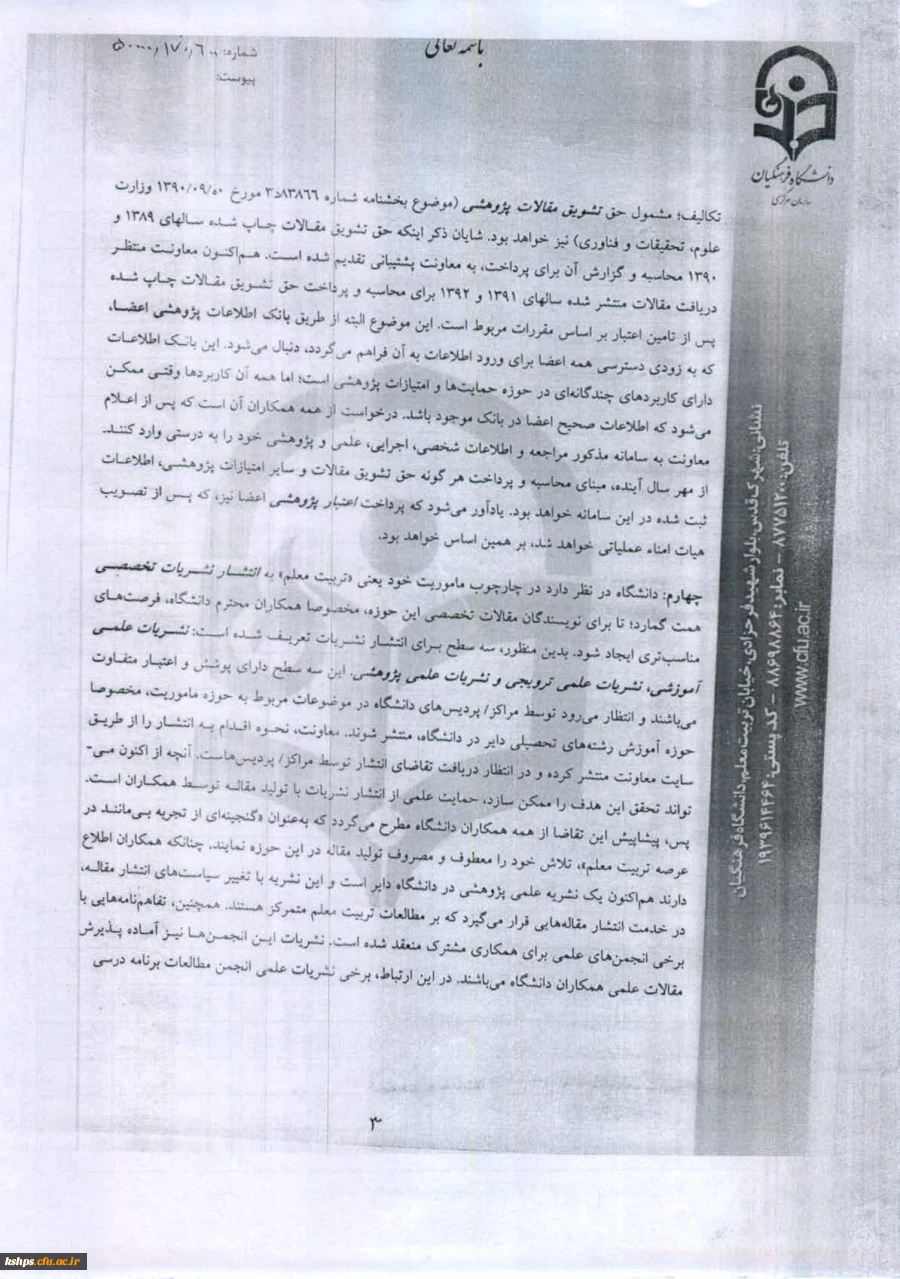 باسمه تعالی
شماره:
پیوست:
دانشگاه فرهنگیان
سازمان مرکزی
تکالیف؛ مشمول حق تشویق مقالات پژوهشی (موضوع بخشنامه شماره ۳د۸۳۸۶۶ مورخ ۱۳۹۰/۰۹/۵۰ وزارت
علوم، تحقیقات و فناوری) نیز خواهد بود. شایان ذکر اینکه حق تشویق مقالات چاپ شده سالهای ۱۳۸۹ و
۱۳۹۰ محاسبه و گزارش آن برای پرداخت، به معاونت پشتیبانی تقدیم شده است. هم‌اکنون معاونت منتظر
دریافت مقالات منتشر شده سالهای ۱۳۹۱ و ۱۳۹۲ برای محاسبه و پرداخت حق تشویق مقالات چاپ شده
پس از تامین اعتبار بر اساس مقررات مربوط است. این موضوع البته از طریق بانک اطلاعات پژوهشی اعضا،
که به زودی دسترسی همه اعضا برای ورود اطلاعات به آن فراهم می‌گردد، دنبال می‌شود. این بانک اطلاعات
دارای کاربردهای چندگانه‌ای در حوزه حمایت‌ها و امتیازات پژوهشی است؛ اما همه آن کاربردها وقتی ممکن
می‌شود که اطلاعات صحیح اعضا در بانک موجود باشد. درخواست از همه همکاران آن است که پس از اعلام
معاونت به سامانه مذکور مراجعه و اطلاعات شخصی، اجرایی، علمی و پژوهشی خود را به درستی وارد کنند.
از مهر سال آینده، مبنای محاسبه و پرداخت هر گونه حق تشویق مقالات و سایر امتیازات پژوهشی، اطلاعات
ثبت شده در این سامانه خواهد بود. یادآور می‌شود که پرداخت اعتبار پژوهشی اعضا نیز، که پس از تصویب
هیات امناء عملیاتی خواهد شد، بر همین اساس خواهد بود.
چهارم: دانشگاه در نظر دارد در چارچوب ماموریت خود یعنی «تربیت معلم» به انتشار نشریات تخصصی
همت گمارد؛ تا برای نویسندگان مقالات تخصصی این حوزه، مخصوصا همکاران محترم دانشگاه، فرصت‌های
مناسب‌تری ایجاد شود. بدین منظور، سه سطح برای انتشار نشریات تعریف شده است: نشریات علمی
آموزشی، نشریات علمی ترویجی و نشریات علمی پژوهشی. این سه سطح دارای پوشش و اعتبار متفاوت
می‌باشند و انتظار می‌رود توسط مراکز/ پردیس‌های دانشگاه در موضوعات مربوط به حوزه ماموریت، مخصوصا
حوزه آموزش رشته‌های تحصیلی دایر در دانشگاه، منتشر شوند. معاونت، نحوه اقدام به انتشار را از طریق
سایت معاونت منتشر کرده و در انتظار دریافت تقاضای انتشار توسط مراکز/ پردیس‌هاست. آنچه از اکنون می-
تواند تحقق این هدف را ممکن سازد، حمایت علمی از انتشار نشریات با تولید مقاله توسط همکاران است.
پس، پیشاپیش این تقاضا از همه همکاران دانشگاه مطرح می‌گردد که به‌عنوان «گنجینه‌ای از تجربه بی‌مانند در
عرصه تربیت معلم»، تلاش خود را معطوف و مصروف تولید مقاله در این حوزه نمایند. چنانکه همکاران اطلاع
دارند هم‌اکنون یک نشریه علمی پژوهشی در دانشگاه دایر است و این نشریه با تغییر سیاست‌های انتشار مقاله،
در خدمت انتشار مقاله‌هایی قرار می‌گیرد که بر مطالعات تربیت معلم متمرکز هستند. همچنین، تفاهم‌نامه‌هایی با
برخی انجمن‌های علمی برای همکاری مشترک منعقد شده است. نشریات این انجمن‌ها نیز آماده پذیرش
مقالات علمی همکاران دانشگاه می‌باشند. در این ارتباط، برخی نشریات علمی انجمن مطالعات برنامه درسی
۳
نشانی: شهرک قدس، بلوار شهید فرحزادی، خیابان تربیت معلم، دانشگاه فرهنگیان
تلفن: ۸۷۷۵۱۲۰۰ – نمابر: ۸۸۶۹۸۸۶۴ – کد پستی: ۱۹۳۹۶۱۴۴۶۴
www.cfu.ac.ir
kshps.cfu.ac.ir